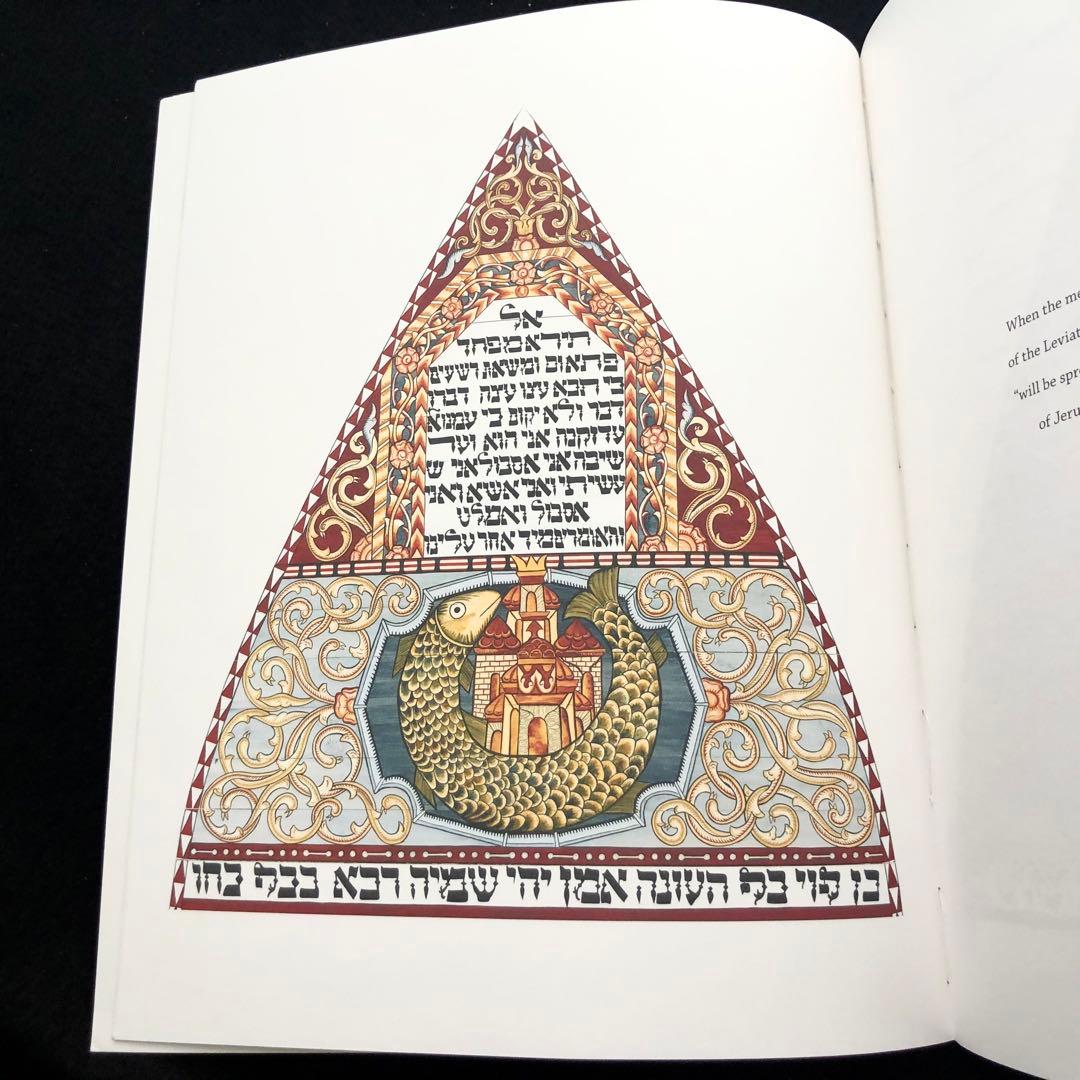 אל
תירא מפחד
פתאום ומשאת רשעים
כי תבא עוצו עצה דברו
דבר ולא יקום כי עמנוא
עד זקנה אני הוא ועד
שיבה אני אסבול אני ש
עשיתי ואני אשא ואני
אסבול ואמלט
והאומר תמיד אחר עלינו
בן לוי כל העונה אמן יהי שמיה רבא בכל כחו
When the me
of the Leviat
“will be spr
of Jeru